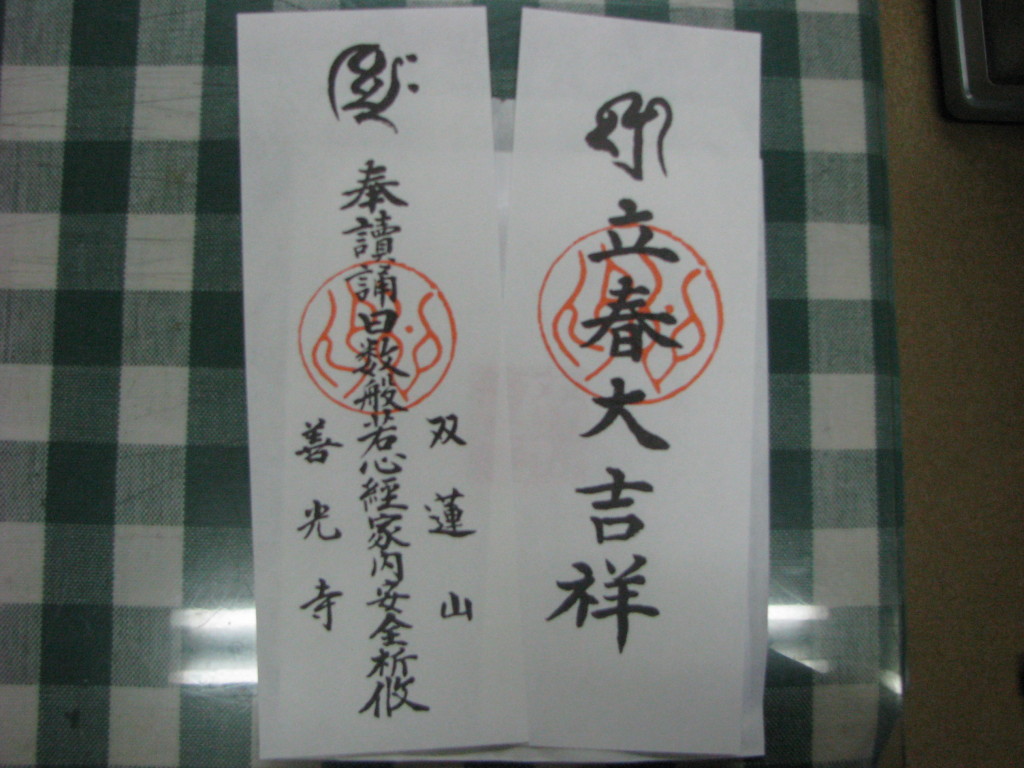 立春大吉祥
双蓮山
奉讀誦日数般若心經家内安全祈攸
善光寺